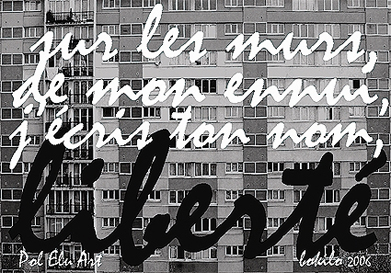 sur les murs,
de mon ennui,
j'écris ton nom,
liberté
Pol Elu Art
bokito 2006